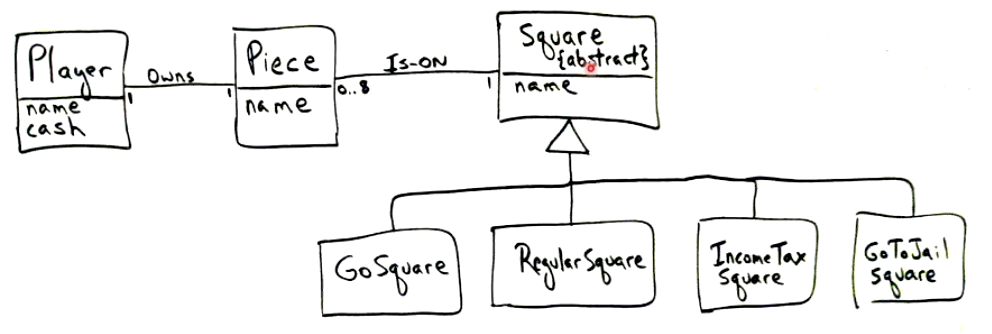 Player
name
cash
Owns
1
1
Piece
name
Is-ON
0..8
1
Square
{abstract}
name
GoSquare
RegularSquare
IncomeTax
Square
GoToJail
Square